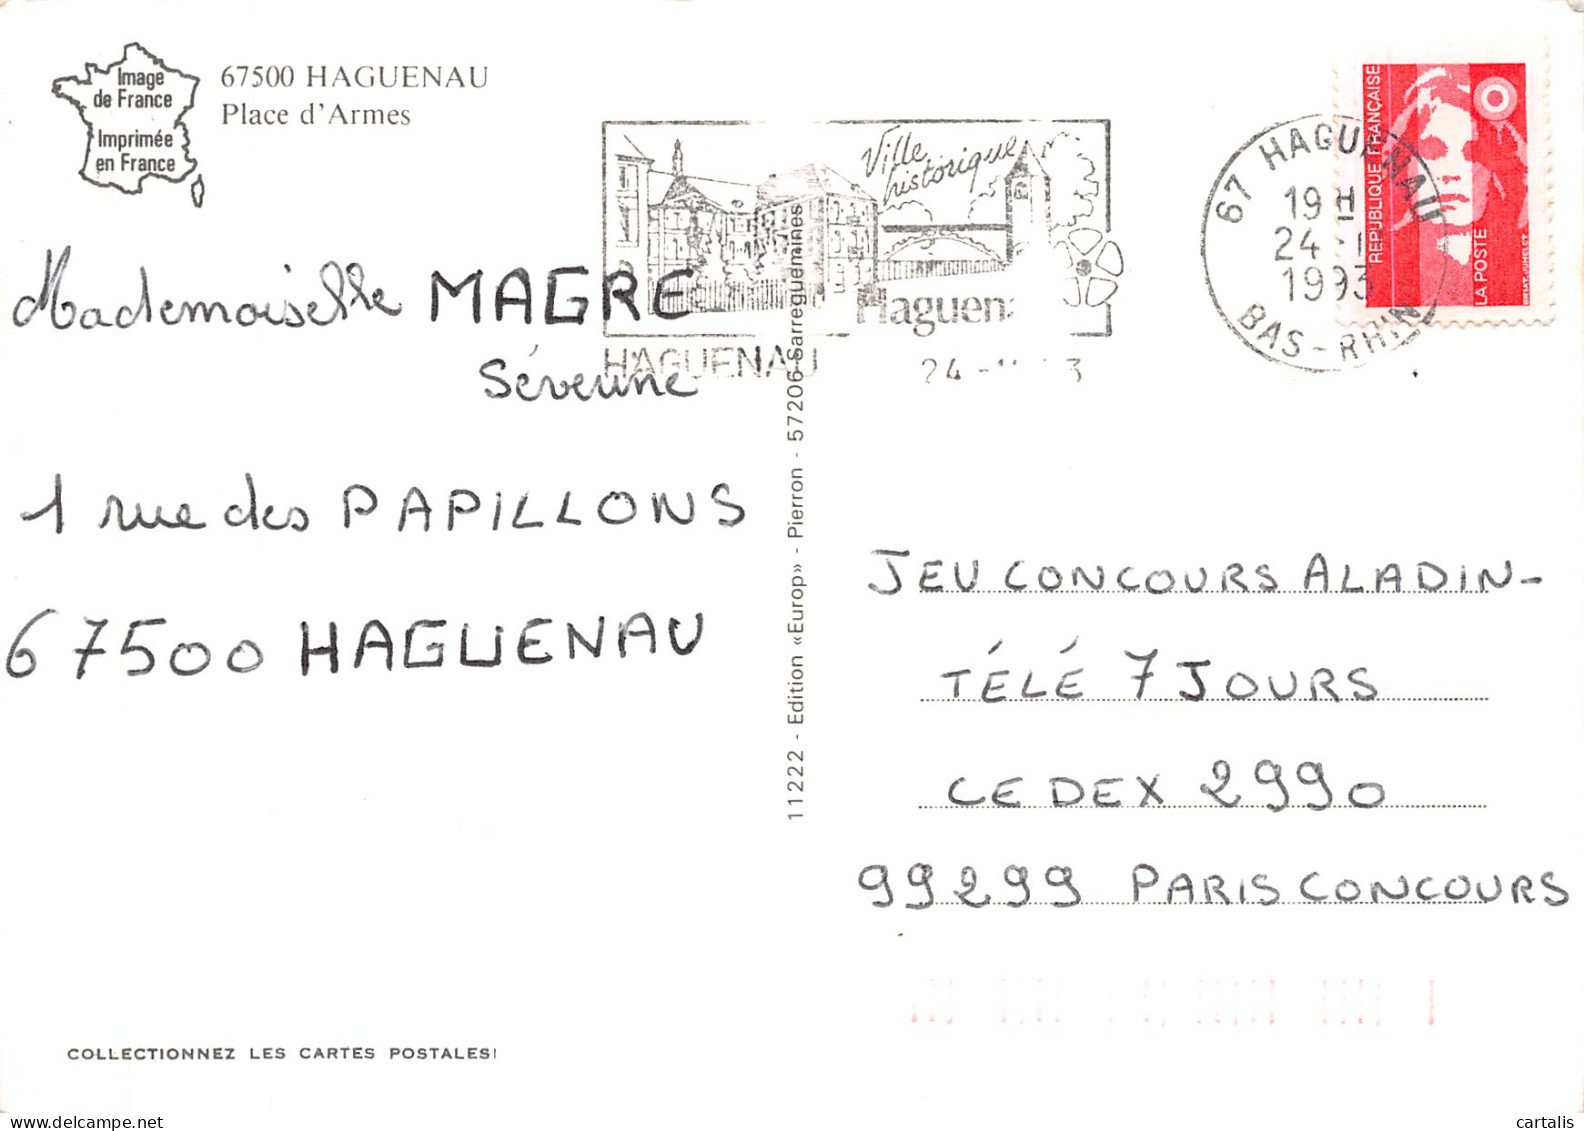 Image
de France
Imprimée
en France
67500 HAGUENAU
Place d'Armes
Ville
historique
HAGUENAU
67 HAGUENAU
19 H
24 -
1993
BAS-RHIN
REPUBLIQUE FRANÇAISE
LA POSTE
Mademoiselle MAGRE
Séverine
1 rue des PAPILLONS
67500 HAGUENAU
11222 - Edition «Europ» - Pierron - 57206 Sarreguemines
JEU CONCOURS ALADIN-
TÉLÉ 7 JOURS
CEDEX 2990
99299 PARIS CONCOURS
COLLECTIONNEZ LES CARTES POSTALES!
www.delcampe.net
cartalis